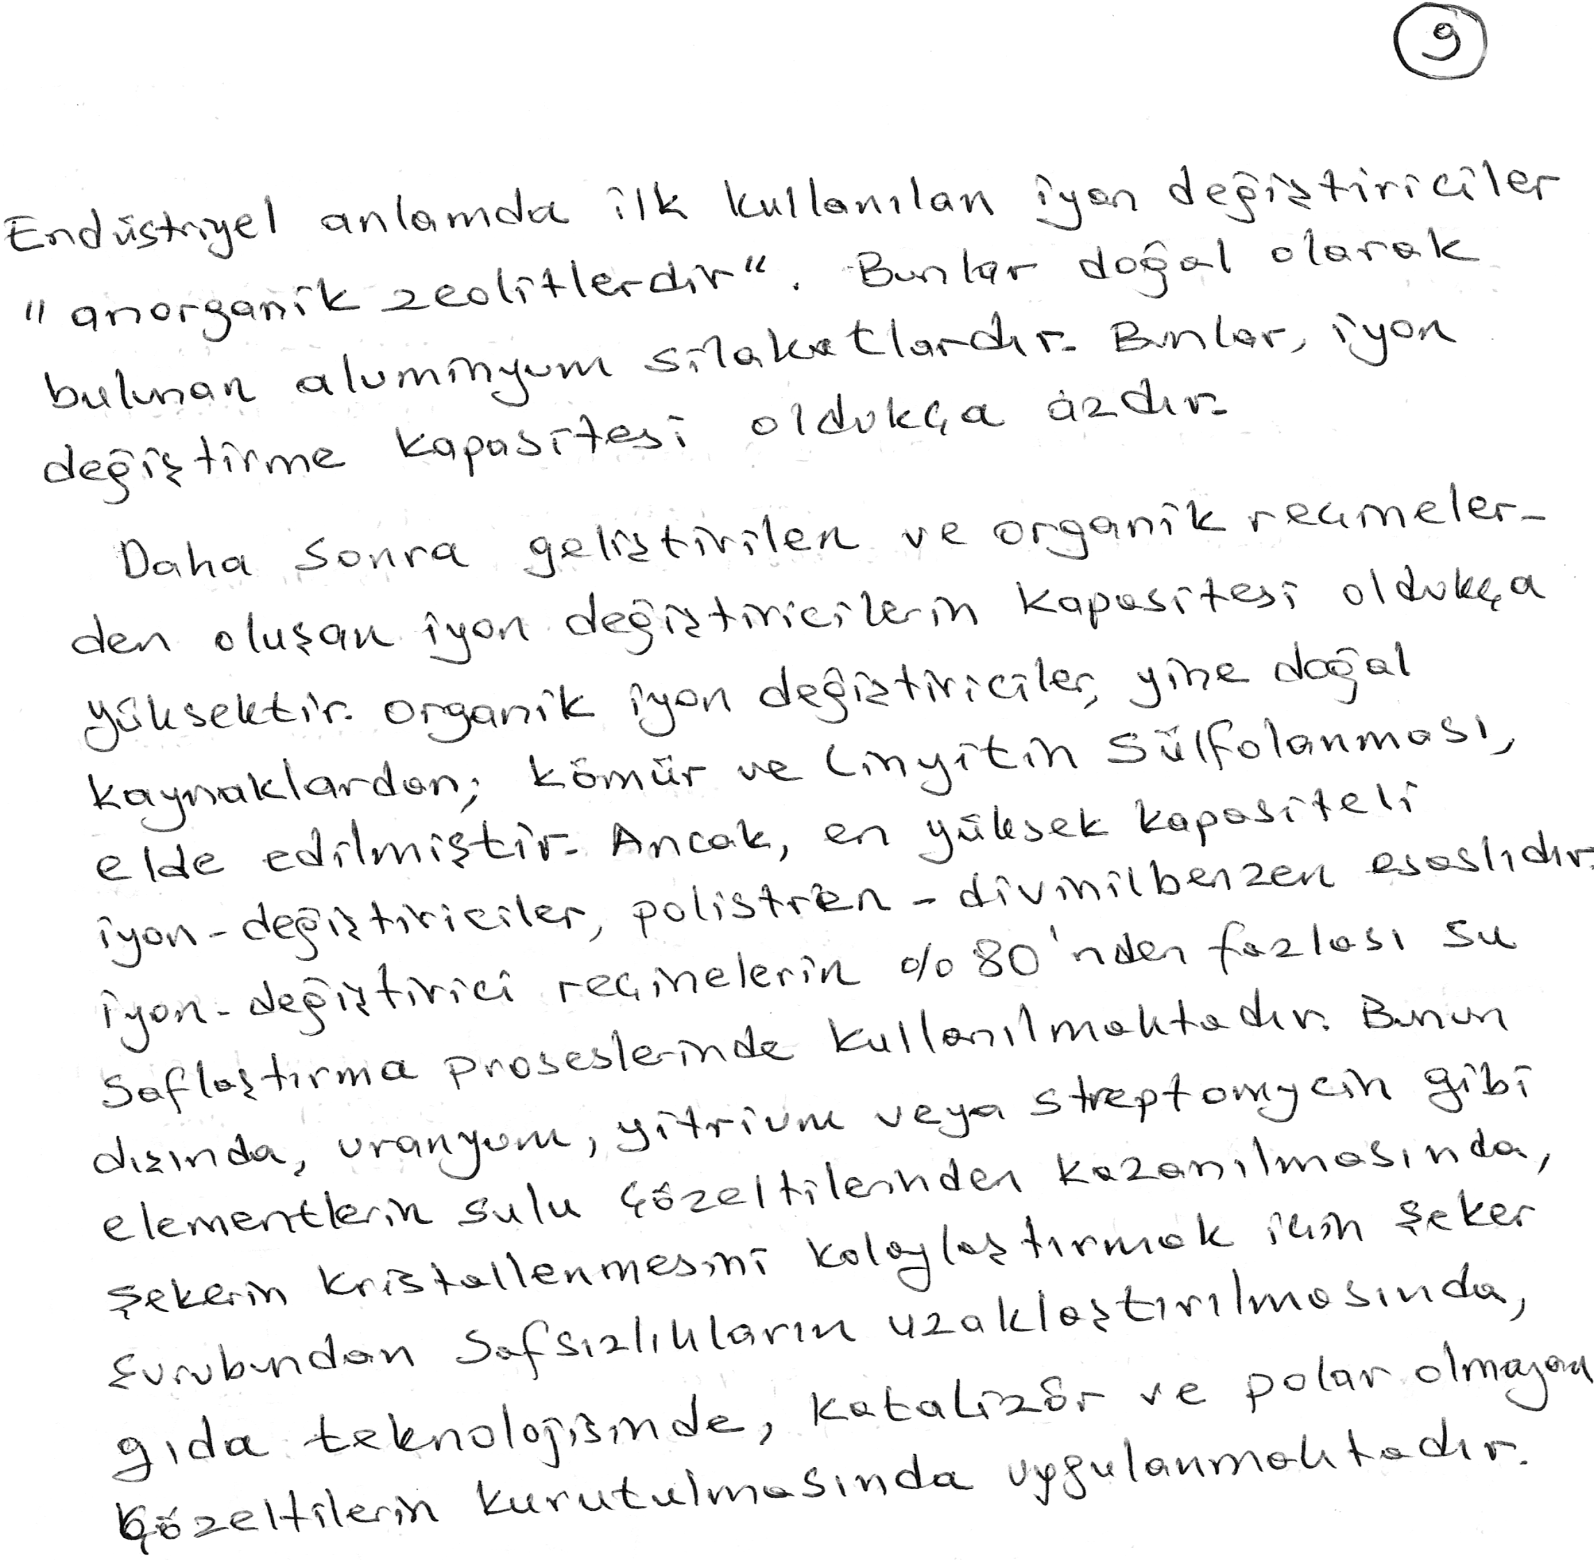 9
Endüstriyel anlamda ilk kullanılan iyon değiştiriciler
"anorganik zeolitlerdir". Bunlar doğal olarak
bulunan aluminyum silakatlardır. Bunlar, iyon
değiştirme kapasitesi oldukça azdır.
Daha sonra geliştirilen ve organik reçineler-
den oluşan iyon değiştiricilerin kapasitesi oldukça
yüksektir. organik iyon değiştiriciler, yine doğal
kaynaklardan; kömür ve linyitin sülfolanması,
elde edilmiştir. Ancak, en yüksek kapasiteli
iyon-değiştiriciler, polistren-divinilbenzen esaslıdır.
iyon-değiştirici reçinelerin %80'nden fazlası su
saflaştırma proseslerinde kullanılmaktadır. Bunun
dışında, uranyum, yitrium veya streptomycin gibi
elementlerin sulu çözeltilerinden kazanılmasında,
şekerin kristallenmesini kolaylaştırmak için şeker
şurubundan safsızlıkların uzaklaştırılmasında,
gıda teknolojisinde, katalizör ve polar olmayan
çözeltilerin kurutulmasında uygulanmaktadır.